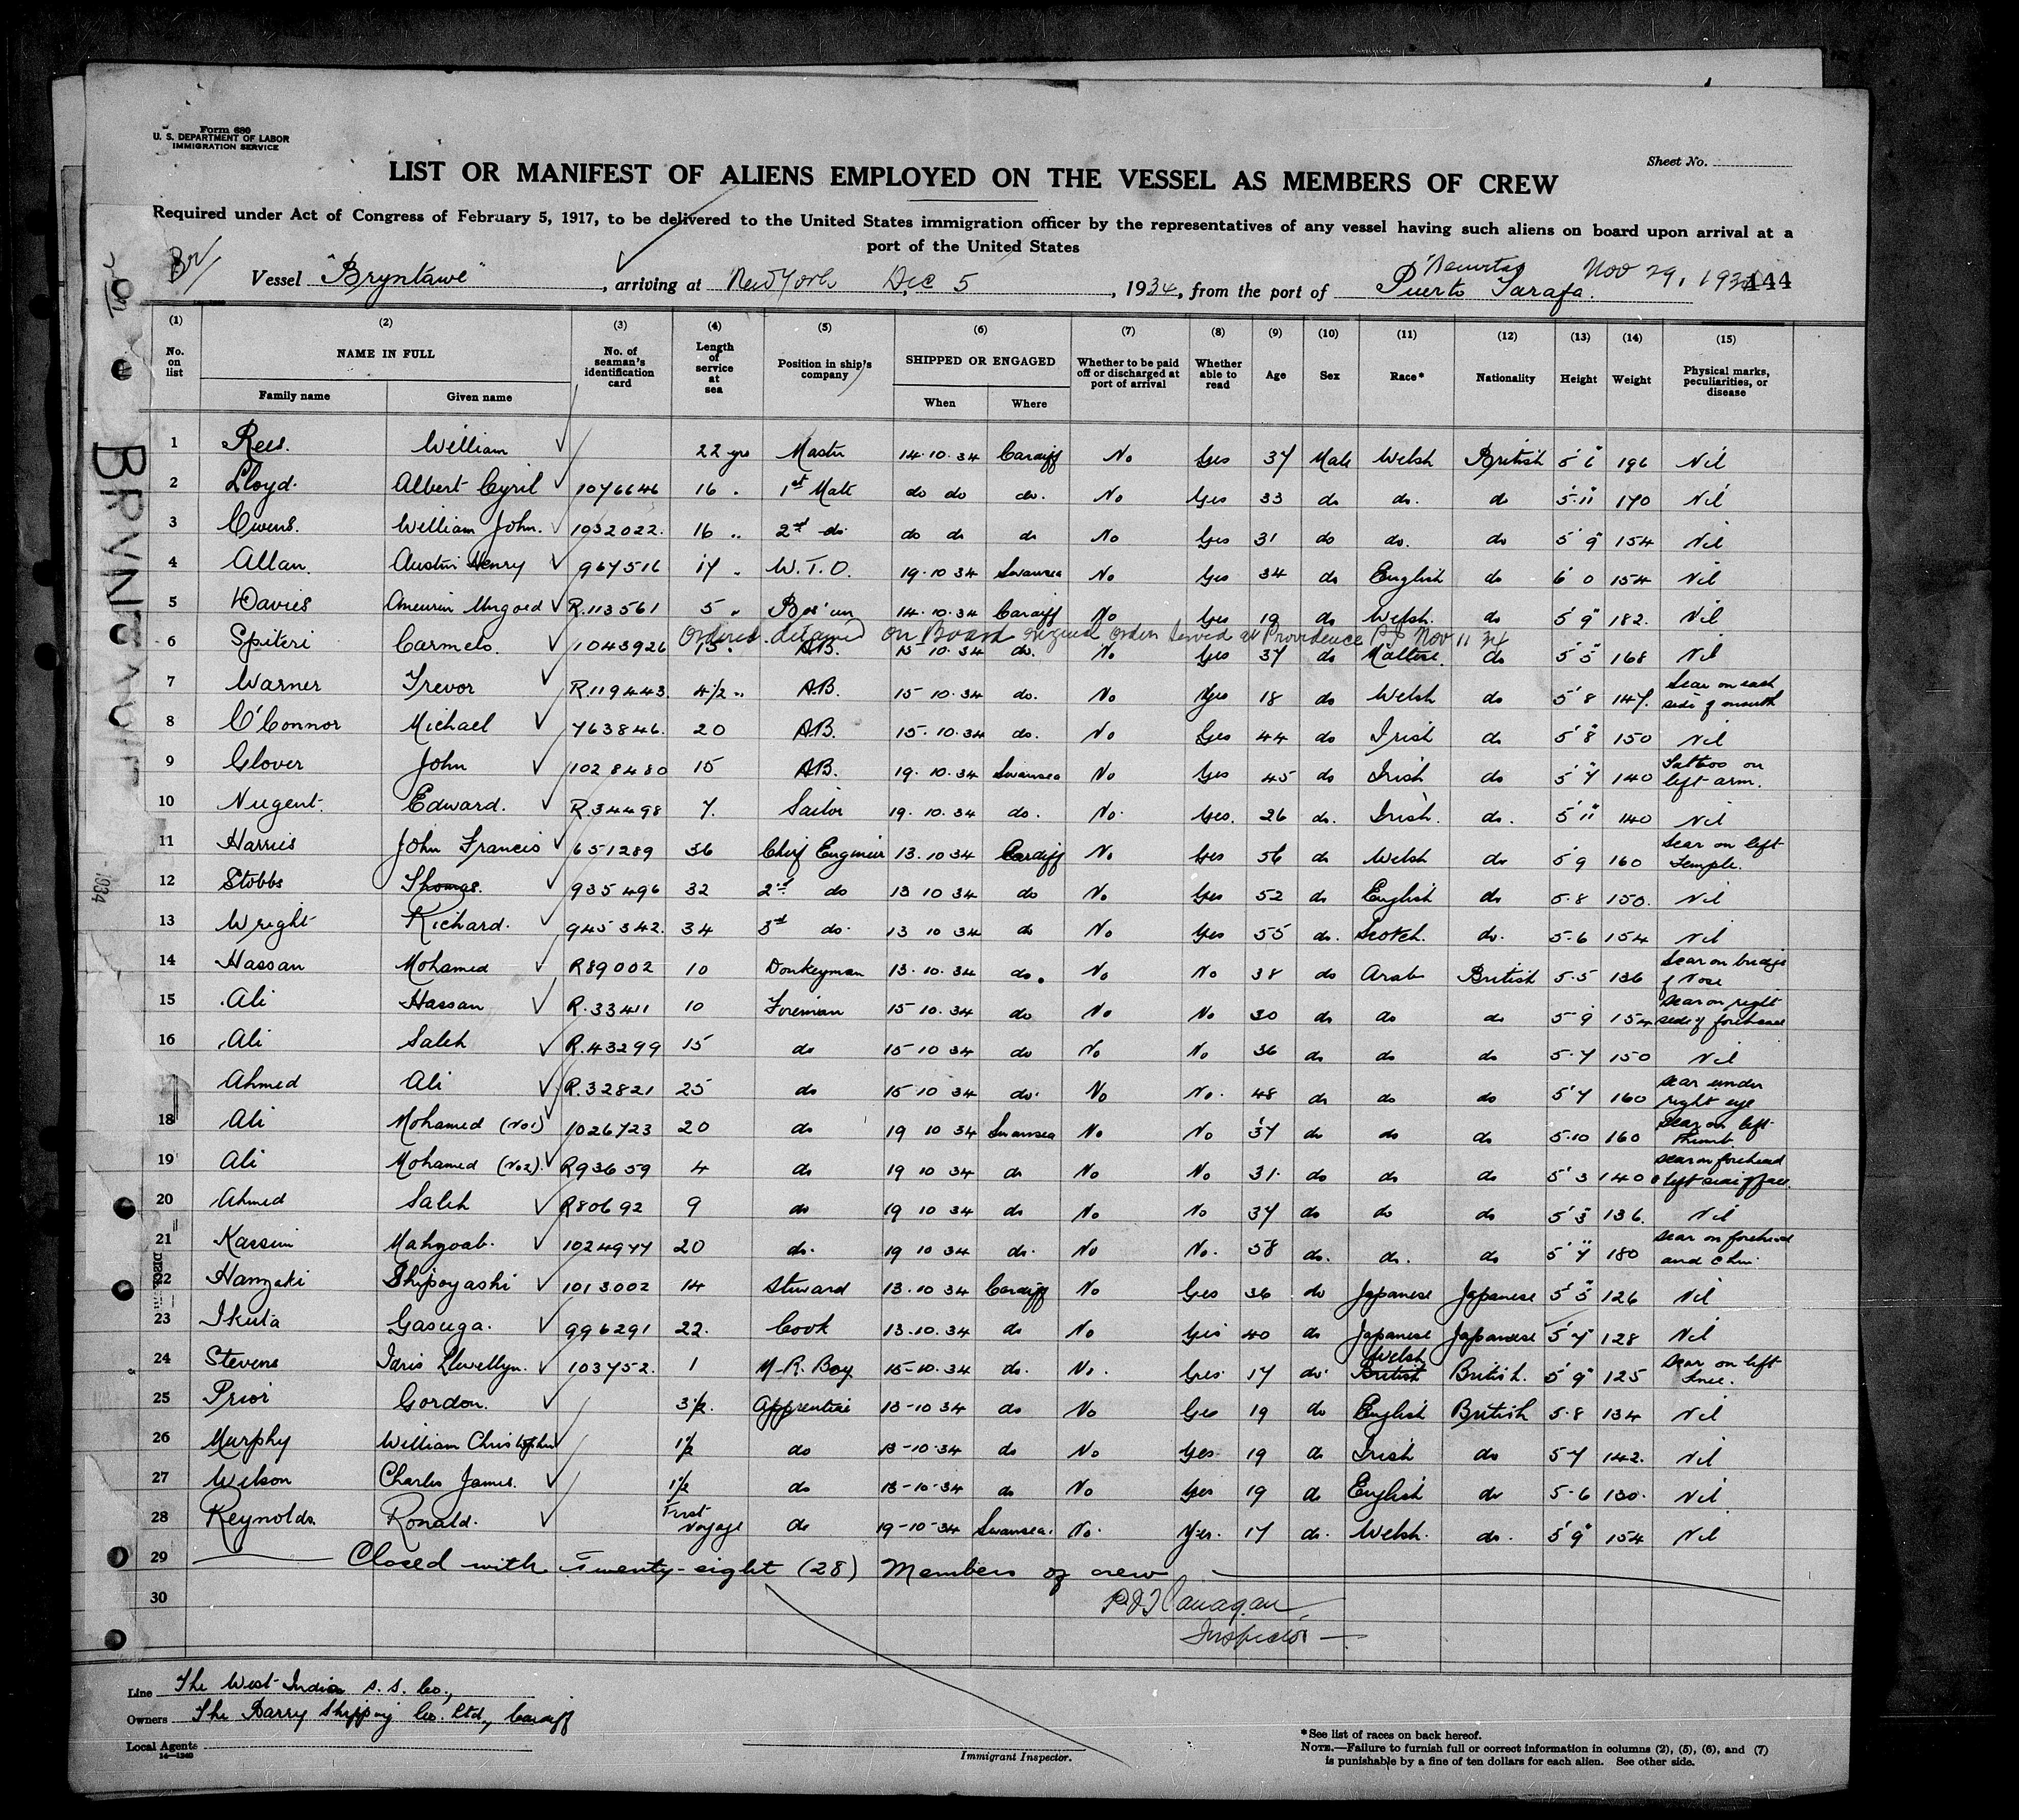 Form 680
U. S. DEPARTMENT OF LABOR
IMMIGRATION SERVICE
Sheet No.
LIST OR MANIFEST OF ALIENS EMPLOYED ON THE VESSEL AS MEMBERS OF CREW
Required under Act of Congress of February 5, 1917, to be delivered to the United States immigration officer by the representatives of any vessel having such aliens on board upon arrival at a
port of the United States
Vessel "Bryntawe", arriving at New York Dec 5, 1934, from the port of Puerto Tarafa. Nov 29, 193 444
(1) (2) (3) (4) (5) (6) (7) (8) (9) (10) (11) (12) (13) (14) (15)
No. on list NAME IN FULL Family name Given name No. of seaman's identification card Length of service at sea Position in ship's company SHIPPED OR ENGAGED When Where Whether to be paid off or discharged at port of arrival Whether able to read Age Sex Race* Nationality Height Weight Physical marks, peculiarities, or disease
1 Rees. William 22 yrs Master 14.10.34 Cardiff No Yes 37 Male Welsh British 5'6" 196 Nil
2 Lloyd. Albert Cyril 1076646 16 " 1st Mate do do do. No Yes 33 do do. do 5'11" 170 Nil
3 Owens. William John. 1032022. 16 " 2nd do do do do No Yes 31 do do. do 5'9" 154 Nil
4 Allan. Austin Henry 967516 17 " W.T.O. 19.10.34 Swansea No Yes 34 do English do 6'0 154 Nil
5 Davies Aneurin R.113561 5 " Bos'un 14.10.34 Cardiff No Yes 19 do Welsh. do 5'9" 182. Nil
Ordered detained on Board original order served at Providence RI Nov 11 34
6 Spiteri Carmelo. 1043926 15. A.B. 15 10.34 do. No Yes 37 do Maltese. do 5'5" 168 Nil
7 Warner Trevor R.119443. 4½ " A.B. 15 10.34 do. No Yes 18 do Welsh do 5'8 147. Scar on each side of mouth
8 O'Connor Michael 763846. 20 A.B. 15.10.34 do. No Yes 44 do Irish do 5'8" 150 Nil
9 Glover John 1028480 15 A.B. 19.10.34 Swansea No Yes 45 do Irish do 5'7" 140 Tattoo on left arm.
10 Nugent. Edward. R.34498 7. Sailor 19.10.34 do. No. Yes. 26 do. Irish. do. 5'11" 140 Nil
11 Harries John Francis 651289 36 Chief Engineer 13.10 34 Cardiff No Yes 56 do Welsh do 5'9 160 Scar on left Temple.
12 Stobbs Thomas. 935496 32 2nd do 13 10 34 do No Yes 52 do English do 5.8 150. Nil
13 Wright Richard. 945342. 34 3rd do. 13 10 34 do No Yes 55 do. Scotch. do. 5.6 154 Nil
14 Hassan Mohamed R89002 10 Donkeyman 13.10.34 do. No No 38 do Arab British 5.5 136 Scar on bridge of Nose
15 Ali Hassan R.33411 10 Fireman 15 10.34 do No No 30 do do do 5'9 154 Scar on right side of forehead
16 Ali Saleh R.43299 15 do 15 10 34 do No No 36 do do do 5.7 150 Nil
Ahmed Ali R.32821 25 do 15 10 34 do. No No. 48 do do do 5'7 160 Scar under right eye
18 Ali Mohamed (No1) 1026723 20 do 19 10 34 Swansea No No 37 do do do 5.10 160 Scar on left Thumb.
19 Ali Mohamed (No2). R93659 4 do 19 10 34 do No No 31. do do do 5'3 140 Scar on forehead & left side of face.
20 Ahmed Saleh R80692 9 do 19 10 34 do No No 37 do do do 5'3" 136. Nil
21 Kassim 1024977 20 do. 19 10 34 do. No No. 58 do. do. do 5'7" 180 Scar on forehead and Chin
22 Hamzaki Shipoyashi 1013002 14 Steward 13.10 34 Cardiff No Yes 36 do Japanese Japanese 5'5" 126 Nil
23 Ikuta Gasuga. 996291 22. Cook 13.10.34 do No Yes 40 do Japanese Japanese 5'7" 128 Nil
24 Stevens Idris Llewellyn. 103752. 1 M.R. Boy 15-10.34 do. No. Yes. 17 do. British Welsh British. 5'9" 125 Scar on left Knee.
25 Prior Gordon. 3½. Apprentice 13-10 34 do No Yes 19 do English British 5.8 134 Nil
26 Murphy William Christopher 1½ do 13-10.34 do No Yes. 19 do Irish do 5-7 142. Nil
27 Wilson Charles James. 1½ do 13-10-34 do No Yes 19 do English do 5.6 130. Nil
28 Reynolds. Ronald. First Voyage do 19-10-34 Swansea. No. Yes. 17 do. Welsh. do. 5'9" 154 Nil
29 Closed with Twenty-eight (28) Members of crew
30
P.J. Flanagan
Inspector
Line The West India S. S. Co.,
Owners The Barry Shipping Co. Ltd., Cardiff
Local Agents
14—1240
Immigrant Inspector.
*See list of races on back hereof.
NOTE.—Failure to furnish full or correct information in columns (2), (5), (6), and (7)
is punishable by a fine of ten dollars for each alien. See other side.
BRYNTAWE
1934